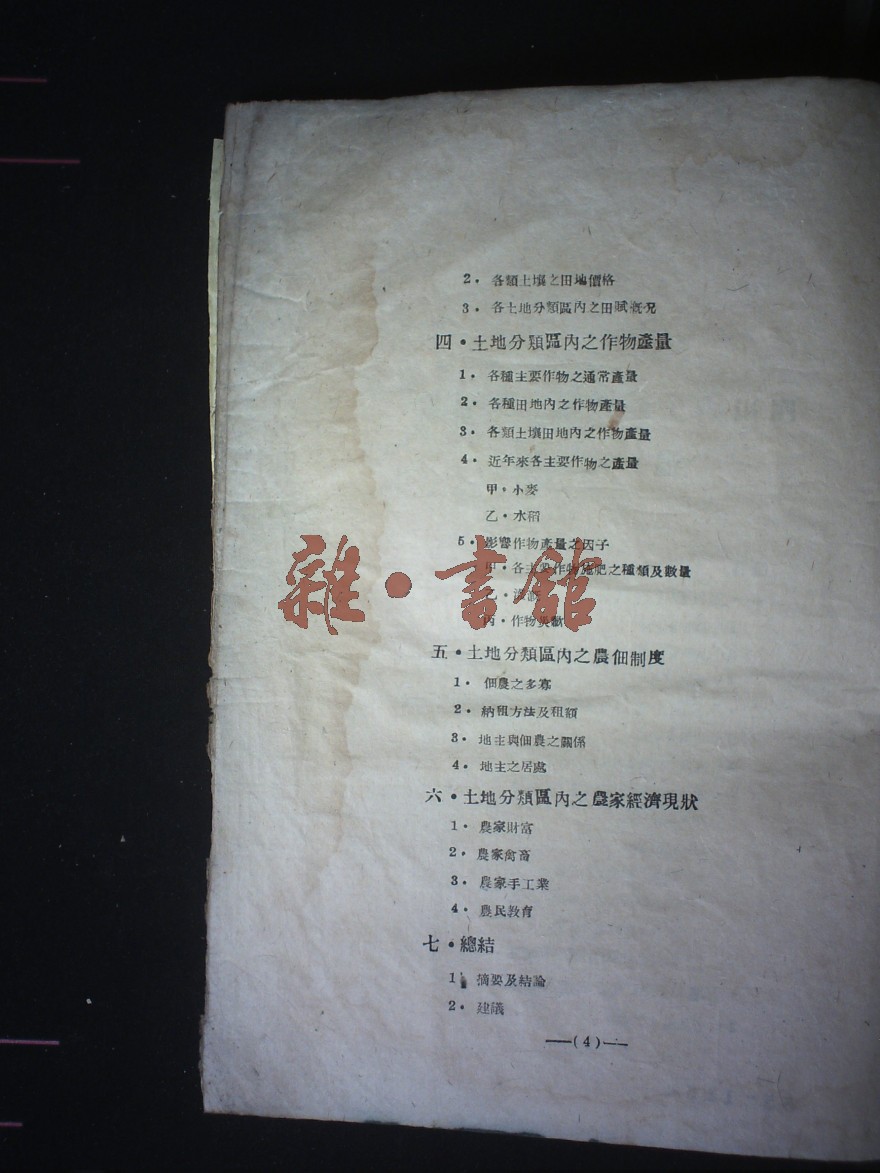 2．各類土壤之田地價格
3．各土地分類區內之田賦概况
四．土地分類區內之作物產量
1．各種主要作物之通常產量
2．各種田地內之作物產量
3．各類土壤田地內之作物產量
4．近年來各主要作物之產量
甲．小麥
乙．水稻
5．影響作物產量之因子
甲．各主要作物施肥之種類及數量
乙．灌溉
丙．作物災歉
雜・書館
五．土地分類區內之農佃制度
1．佃農之多寡
2．納租方法及租額
3．地主與佃農之關係
4．地主之居處
六．土地分類區內之農家經濟現狀
1．農家財富
2．農家禽畜
3．農家手工業
4．農民敎育
七．總結
1．摘要及結論
2．建議
—(4)—